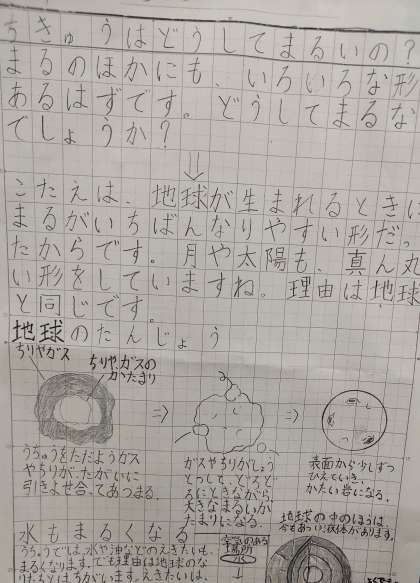 ちきゅうはどうしてまるいの?
まるのほかにも、いろいろな形
あるはずです。どうしてまるな
でしょうか?
こたえは、地球が生まれるときに
まるがいちばんなりやすい形だっ
たからです。月や太陽も、真ん丸
い形をしていますね。理由は地球
と同じです。
地球のたんじょう
ちりやガス
ちりやガスの
かたまり
うちゅうをただようガス
やちりがたがいに
引きよせ合ってあつまる。
ガスやちりがしょう
とつして、どろど
ろにときながら、
大きなまるいか
たまりになる。
表面から少しずつ
ひえていき、
かたい岩になる。
地球の中のほうは、
今もあつい液体があります。
水もまるくなる
うちゅうでは、水や油などのえきたいも、
まるくなります。でも理由は地球のな
りたちとはちがいます。えきたいは、